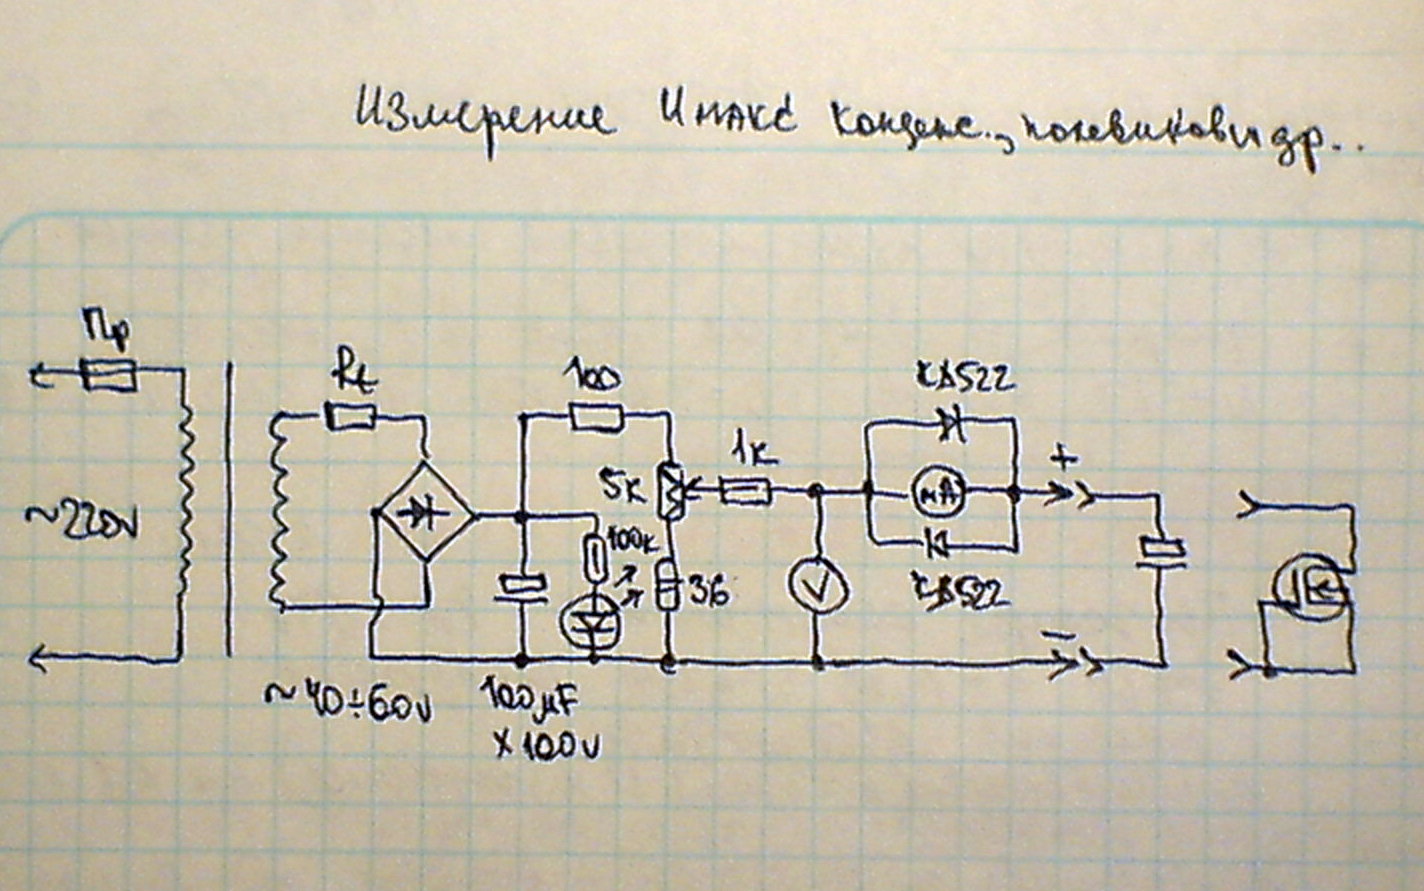 Измерение Uмакс конденс., полевиков и др..
Пр
Rt
100
КД522
+
1к
5к
мА
~220V
100к
36
V
КД522
−
~40÷60V
100µF
x100V